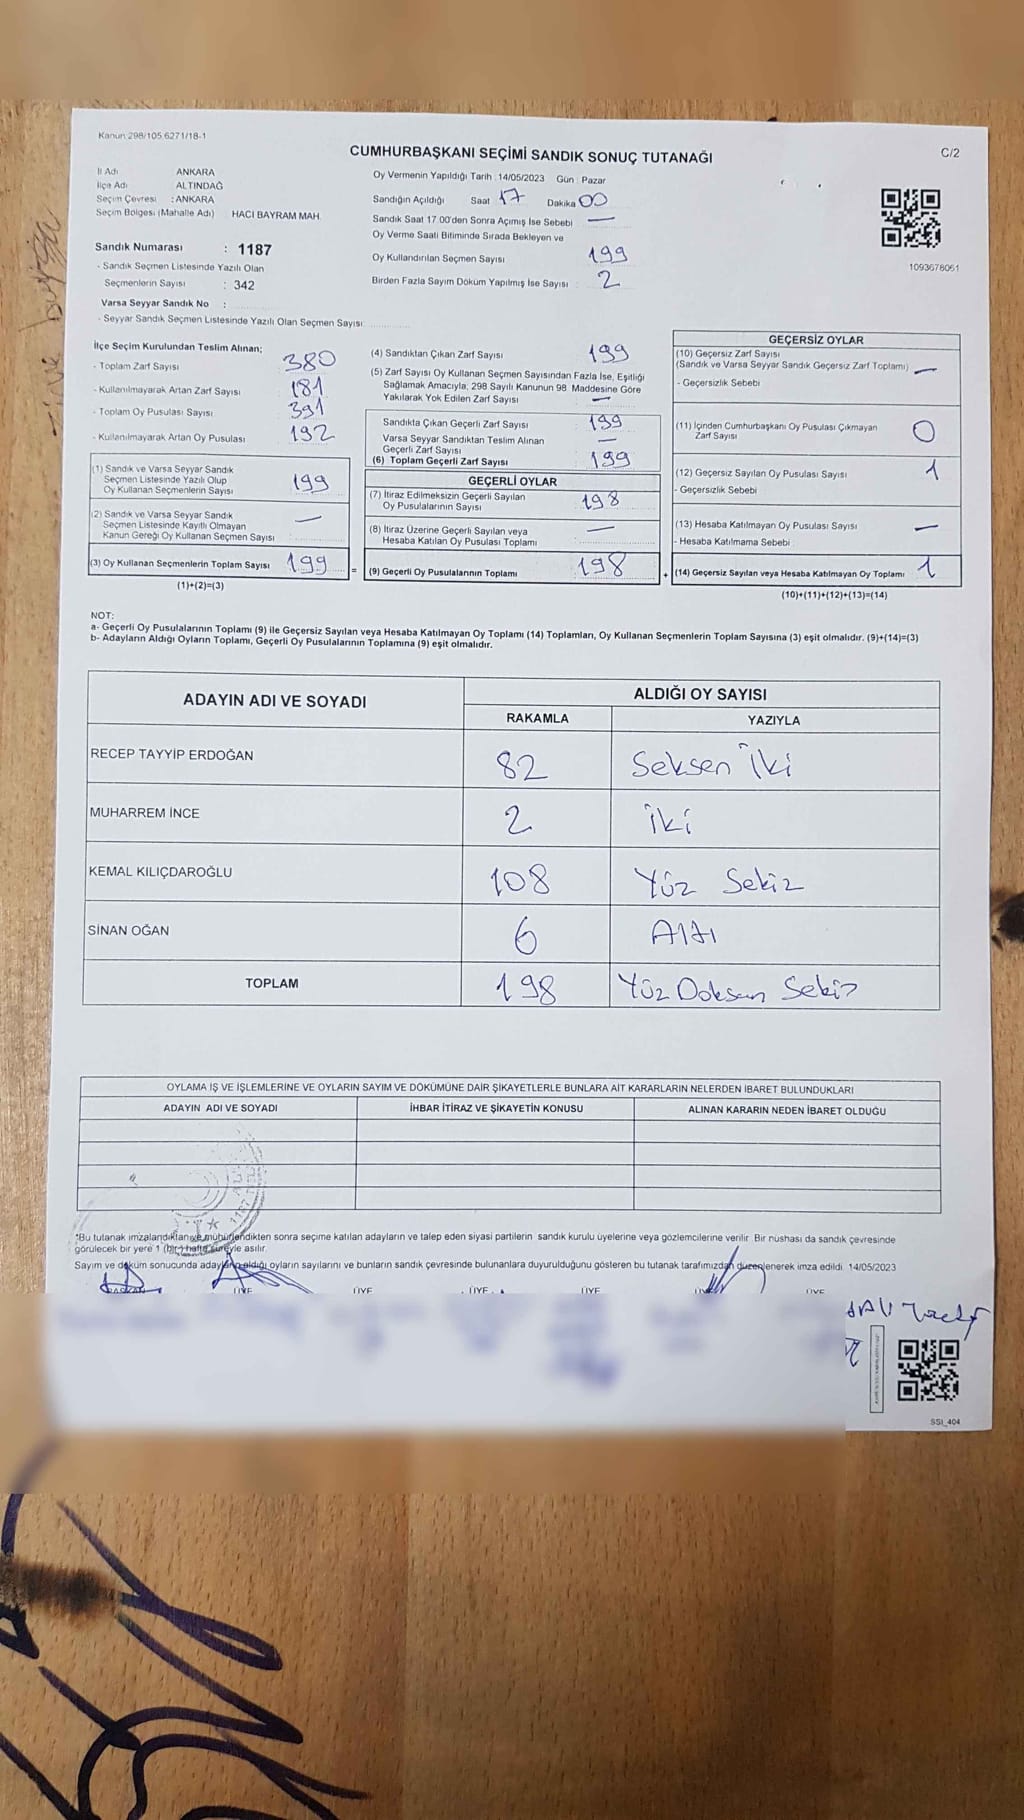 Kanun 298/105,6271/18-1
CUMHURBAŞKANI SEÇİMİ SANDIK SONUÇ TUTANAĞI
C/2
İl Adı : ANKARA
İlçe Adı : ALTINDAĞ
Seçim Çevresi : ANKARA
Seçim Bölgesi (Mahalle Adı) HACI BAYRAM MAH.
Sandık Numarası : 1187
- Sandık Seçmen Listesinde Yazılı Olan
Seçmenlerin Sayısı : 342
Varsa Seyyar Sandık No :
- Seyyar Sandık Seçmen Listesinde Yazılı Olan Seçmen Sayısı:
Oy Vermenin Yapıldığı Tarih :14/05/2023 Gün : Pazar
Sandığın Açıldığı Saat 17 Dakika 00
Sandık Saat 17.00'den Sonra Açımış İse Sebebi —
Oy Verme Saati Bitiminde Sırada Bekleyen ve
Oy Kullandırılan Seçmen Sayısı 199
Birden Fazla Sayım Döküm Yapılmış İse Sayısı : 2
1093678061
İlçe Seçim Kurulundan Teslim Alınan;
- Toplam Zarf Sayısı 380
- Kullanılmayarak Artan Zarf Sayısı 181
- Toplam Oy Pusulası Sayısı 391
- Kullanılmayarak Artan Oy Pusulası 192
(1) Sandık ve Varsa Seyyar Sandık
Seçmen Listesinde Yazılı Olup
Oy Kullanan Seçmenlerin Sayısı 199
(2) Sandık ve Varsa Seyyar Sandık
Seçmen Listesinde Kayıtlı Olmayan
Kanun Gereği Oy Kullanan Seçmen Sayısı —
(3) Oy Kullanan Seçmenlerin Toplam Sayısı 199 =
(1)+(2)=(3)
(4) Sandıktan Çıkan Zarf Sayısı 199
(5) Zarf Sayısı Oy Kullanan Seçmen Sayısından Fazla İse, Eşitliği
Sağlamak Amacıyla, 298 Sayılı Kanunun 98. Maddesine Göre
Yakılarak Yok Edilen Zarf Sayısı —
Sandıkta Çıkan Geçerli Zarf Sayısı 199
Varsa Seyyar Sandıktan Teslim Alınan
Geçerli Zarf Sayısı —
(6) Toplam Geçerli Zarf Sayısı 199
GEÇERLİ OYLAR
(7) İtiraz Edilmeksizin Geçerli Sayılan
Oy Pusulalarının Sayısı 198
(8) İtiraz Üzerine Geçerli Sayılan veya
Hesaba Katılan Oy Pusulası Toplamı —
(9) Geçerli Oy Pusulalarının Toplamı 198 +
GEÇERSİZ OYLAR
(10) Geçersiz Zarf Sayısı
(Sandık ve Varsa Seyyar Sandık Geçersiz Zarf Toplamı) —
- Geçersizlik Sebebi
(11) İçinden Cumhurbaşkanı Oy Pusulası Çıkmayan
Zarf Sayısı 0
(12) Geçersiz Sayılan Oy Pusulası Sayısı 1
- Geçersizlik Sebebi
(13) Hesaba Katılmayan Oy Pusulası Sayısı —
- Hesaba Katılmama Sebebi
(14) Geçersiz Sayılan veya Hesaba Katılmayan Oy Toplamı 1
(10)+(11)+(12)+(13)=(14)
NOT:
a- Geçerli Oy Pusulalarının Toplamı (9) ile Geçersiz Sayılan veya Hesaba Katılmayan Oy Toplamı (14) Toplamları, Oy Kullanan Seçmenlerin Toplam Sayısına (3) eşit olmalıdır. (9)+(14)=(3)
b- Adayların Aldığı Oyların Toplamı, Geçerli Oy Pusulalarının Toplamına (9) eşit olmalıdır.
ADAYIN ADI VE SOYADI ALDIĞI OY SAYISI
RAKAMLA YAZIYLA
RECEP TAYYİP ERDOĞAN 82 Seksen İki
MUHARREM İNCE 2 İki
KEMAL KILIÇDAROĞLU 108 Yüz Sekiz
SİNAN OĞAN 6 Altı
TOPLAM 198 Yüz Doksan Sekiz
OYLAMA İŞ VE İŞLEMLERİNE VE OYLARIN SAYIM VE DÖKÜMÜNE DAİR ŞİKAYETLERLE BUNLARA AİT KARARLARIN NELERDEN İBARET BULUNDUKLARI
ADAYIN ADI VE SOYADI İHBAR İTİRAZ VE ŞİKAYETİN KONUSU ALINAN KARARIN NEDEN İBARET OLDUĞU
*Bu tutanak imzalandıktan ve mühürlendikten sonra seçime katılan adayların ve talep eden siyasi partilerin sandık kurulu üyelerine veya gözlemcilerine verilir. Bir nüshası da sandık çevresinde
görülecek bir yere 1 (bir) hafta süreyle asılır.
Sayım ve döküm sonucunda adayların aldığı oyların sayılarını ve bunların sandık çevresinde bulunanlara duyurulduğunu gösteren bu tutanak tarafımızdan düzenlenerek imza edildi. 14/05/2023
BAŞKAN ÜYE ÜYE ÜYE ÜYE ÜYE
SSI_404